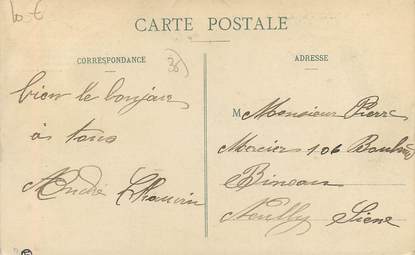 10 €
CARTE POSTALE
CORRESPONDANCE
36
ADRESSE
bien le bonjour
à tous
André Chauvin
M Monsieur Pierre
Mercier 106 Boulevard
Bineau
Neuilly Seine